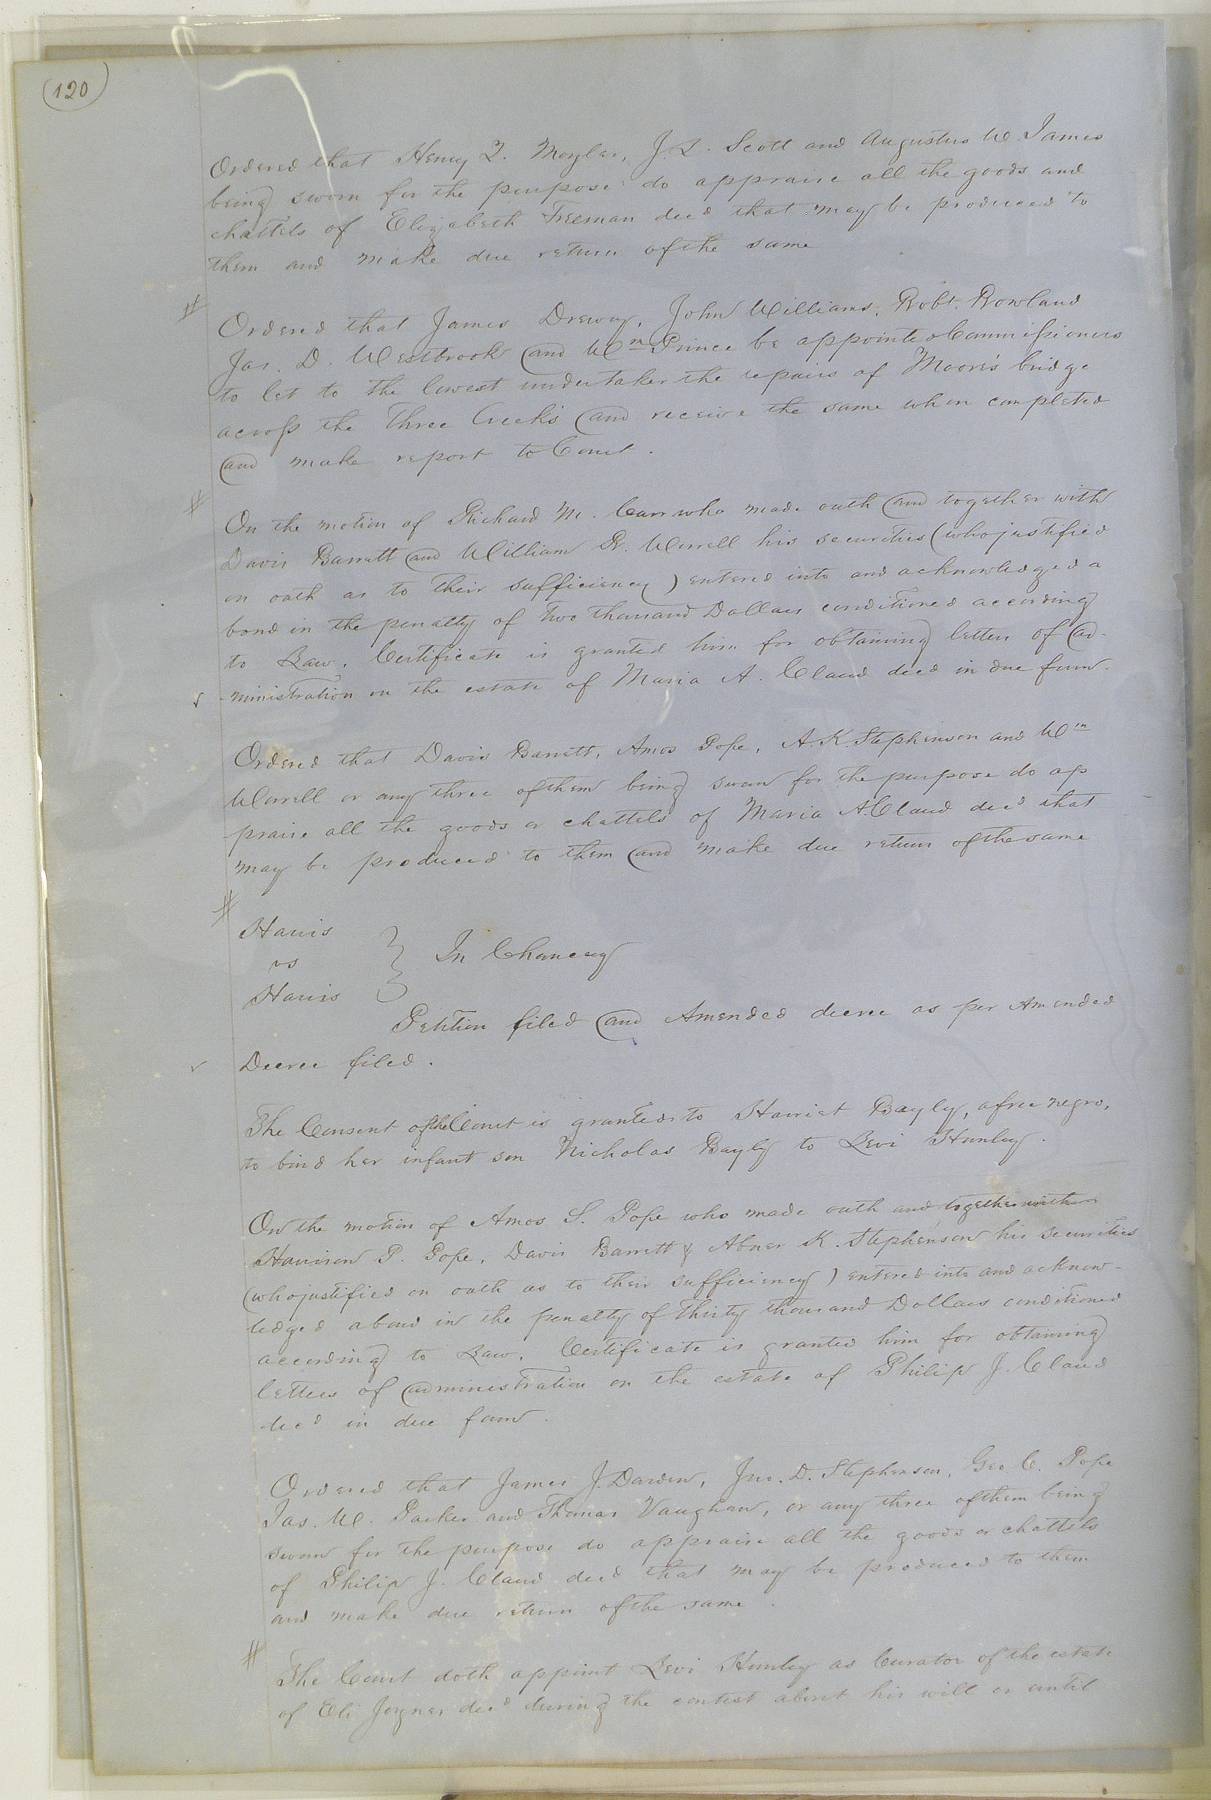 (120)
Ordered that Henry T. Moyler, J. L. Scott and Augustus W. James
being sworn for the purpose do appraise all the goods and
chattels of Elizabeth Freeman decd that may be produced to
them and make due return of the same
#
Ordered that James Drewry, John Williams, Robt. Rowland
Jas. D. Westbrook and Wm Prince be appointed Commissioners
to let to the lowest undertaker the repairs of Moore's bridge
across the Three Creeks and receive the same when completed
and make report to Court.
#
On the motion of Richard M. Carr who made oath and together with
Davis Barrett and William R. Worrell his securities (who justified
on oath as to their sufficiency) entered into and acknowledged a
bond in the penalty of two thousand Dollars conditioned according
to Law. Certificate is granted him for obtaining letters of ad-
ministration on the estate of Maria A. Claud decd in due form.
Ordered that Davis Barrett, Amos Pope, A. K. Stephenson and Wm
Worrell or any three of them being sworn for the purpose do ap
praise all the goods or chattels of Maria A. Claud decd that
may be produced to them and make due return of the same
#
Harris
vs } In Chancery
Harris
Petition filed and Amended decree as per Amended
Decree filed.
The Consent of the Court is granted to Harriet Bayly, a free negro,
to bind her infant son Nicholas Bayly to Levi Hunley.
On the motion of Amos S. Pope who made oath and together with
Harrison P. Pope, Davis Barrett & Abner K. Stephenson his securities
(who justified on oath as to their sufficiency) entered into and acknow-
ledged a bond in the penalty of thirty thousand Dollars conditioned
according to Law. Certificate is granted him for obtaining
letters of administration on the estate of Philip J. Claud
decd in due form.
Ordered that James J. Darden, Jno. D. Stephenson, Geo C. Pope
Jas. W. Parker and Thomas Vaughan, or any three of them being
sworn for the purpose do appraise all the goods or chattels
of Philip J. Claud decd that may be produced to them
and make due return of the same.
#
The Court doth appoint Levi Hunley as Curator of the estate
of Eli Joyner decd during the contest about his will or until